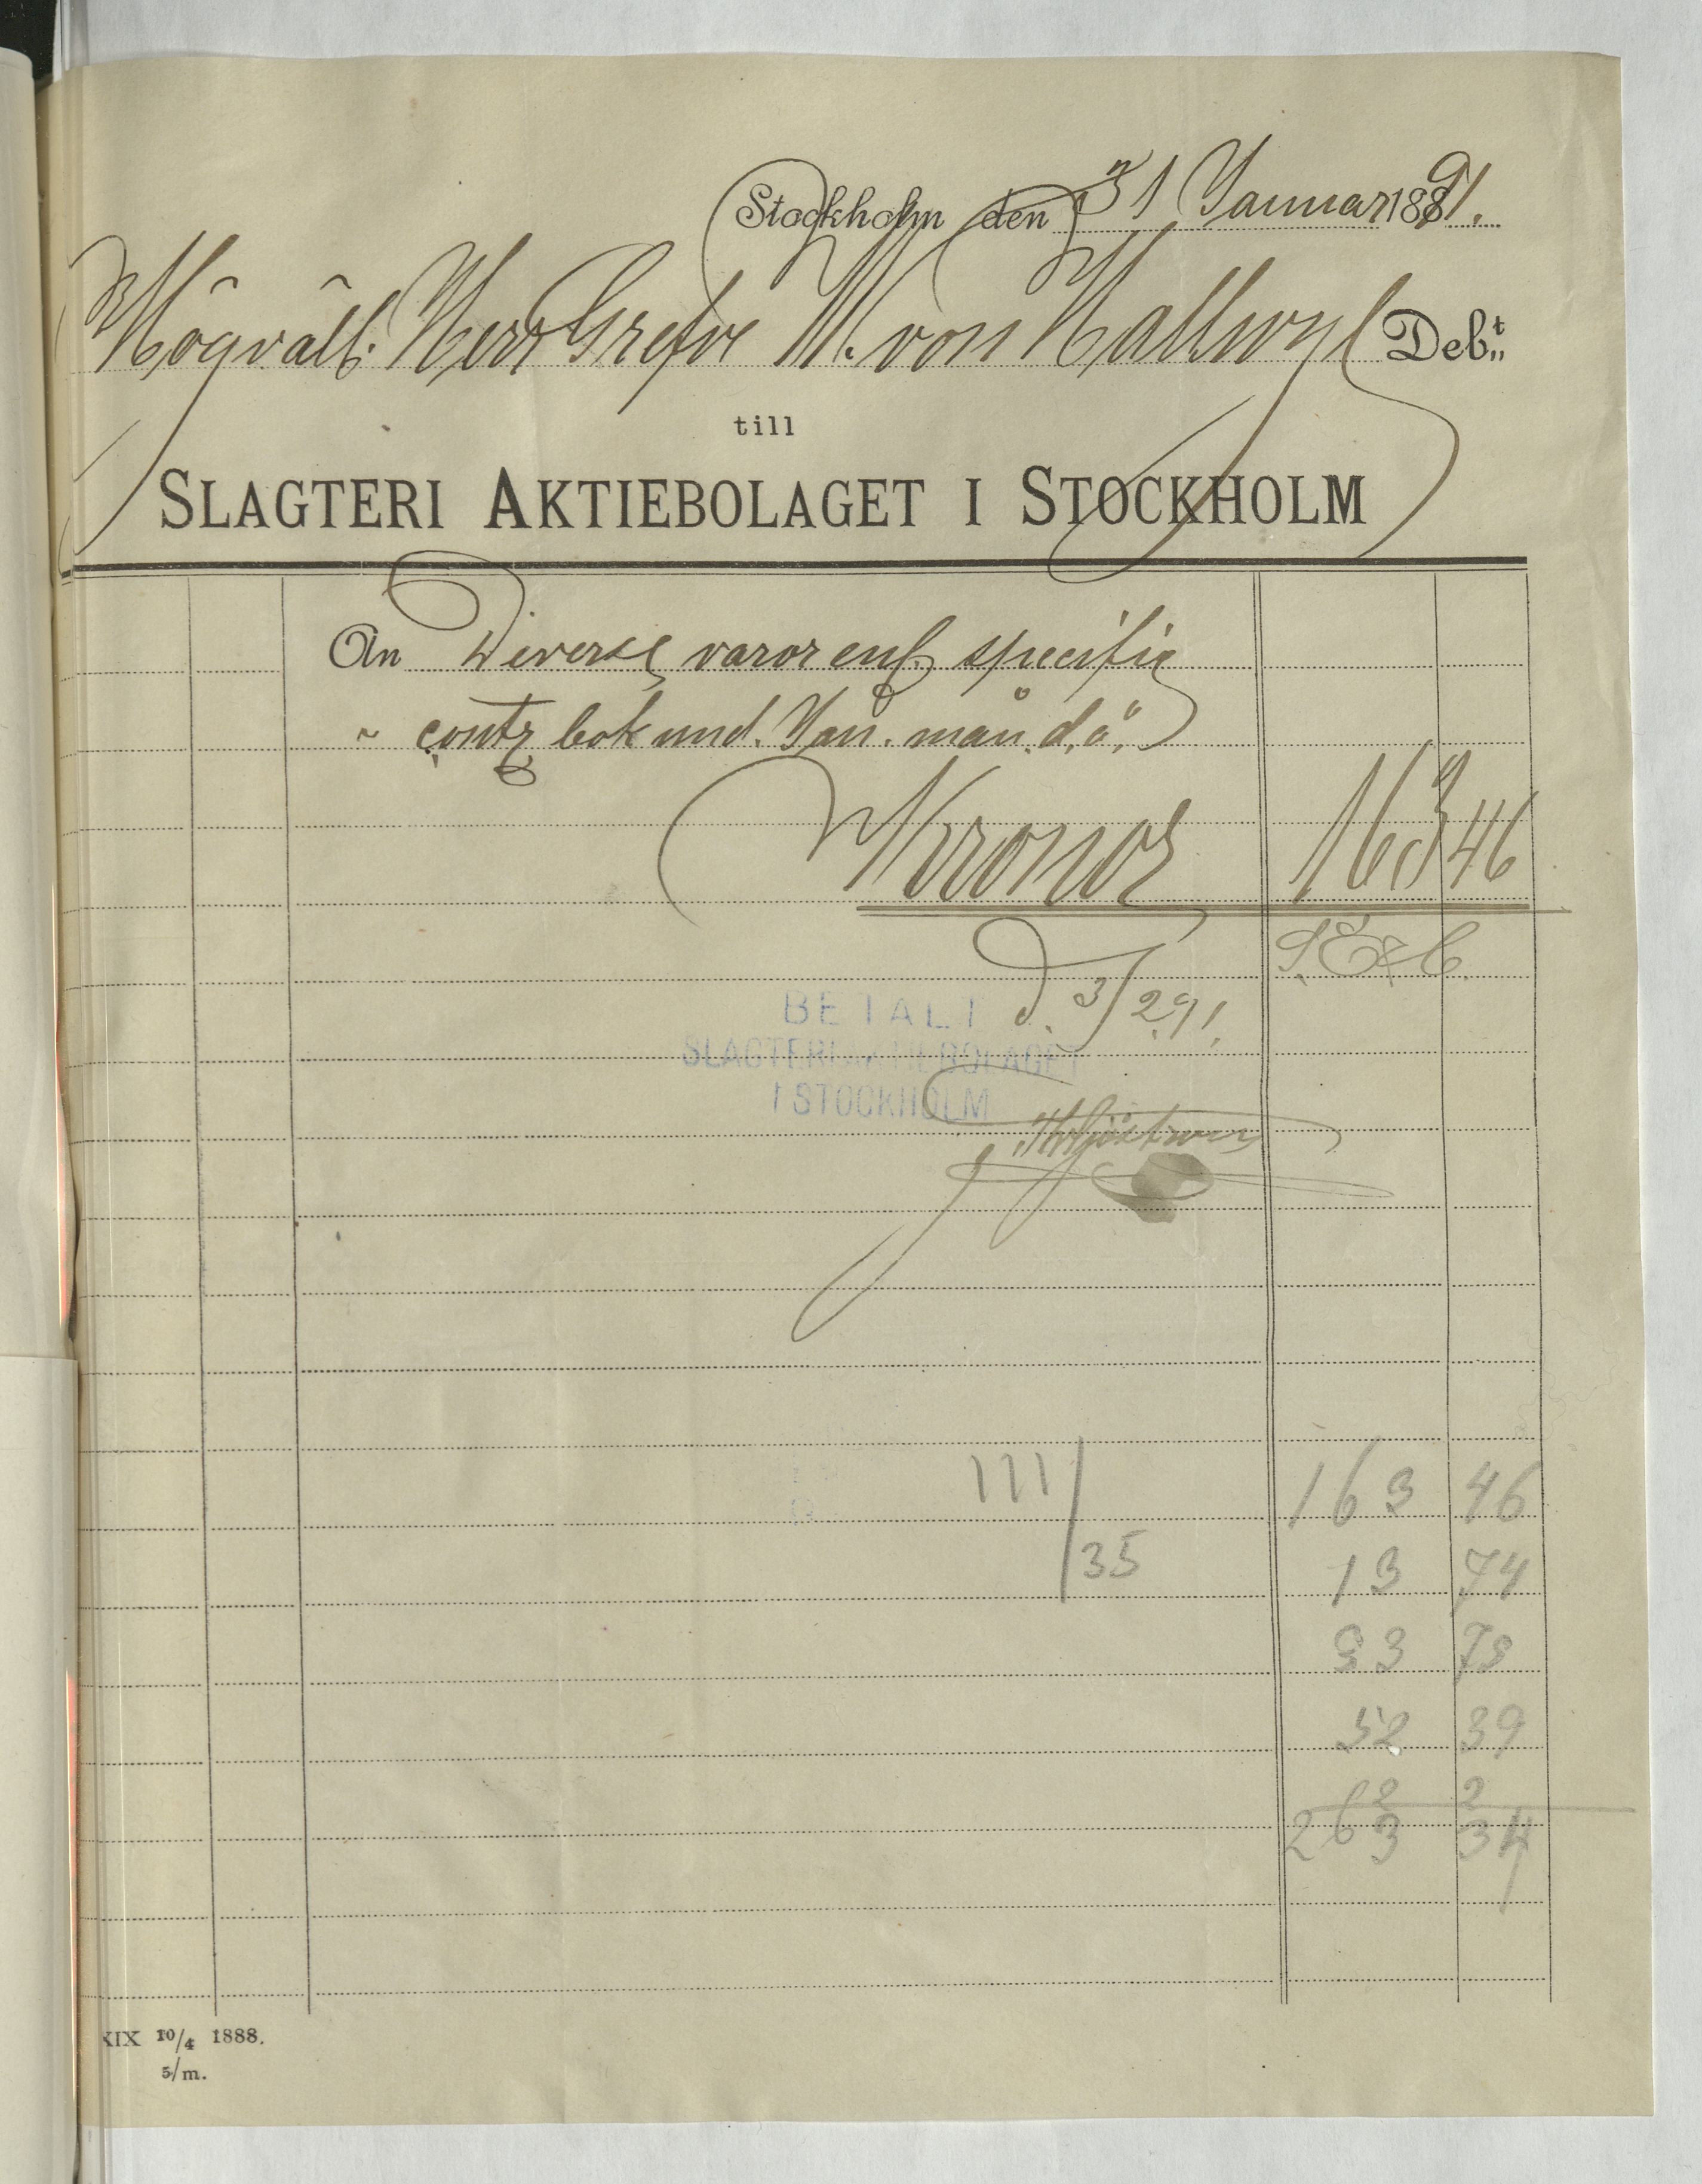 Stockholm den 31 Januar 1891.
Högvälb. Herr Grefve W. von Hallwyl Deb:t
till
SLAGTERI AKTIEBOLAGET I STOCKHOLM
An Diverse varor enl. specific
" contr bok und. Jan. mån. d.å.
Kronor 163 46
S. E & O.
BETALT d. 3/2 91.
SLAGTERIAKTIEBOLAGET
I STOCKHOLM
111/35
163 46
13 74
33 73
52 39
2 2
263 34
XIX 10/4 1888.
5/m.